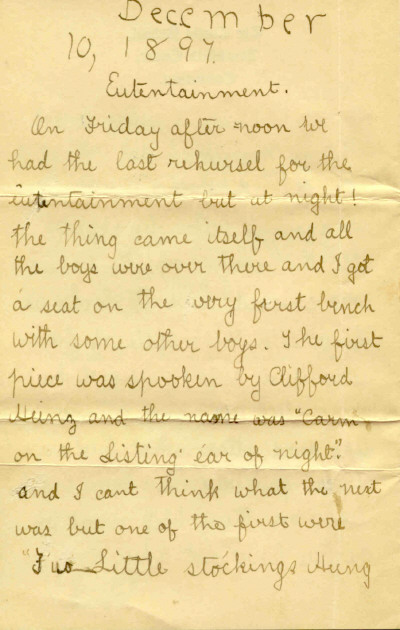 December
10, 1897.
Eutentainment.
On Friday after noon we
had the last rehursel for the
eutentainment but at night!
the thing came itself and all
the boys were over there and I got
a seat on the very first bench
with some other boys. The first
piece was spooken by Clifford
and the name was "Carm
on the Listing ear of night".
and I cant think what the next
was but one of the first were
"Two Little stockings Hung